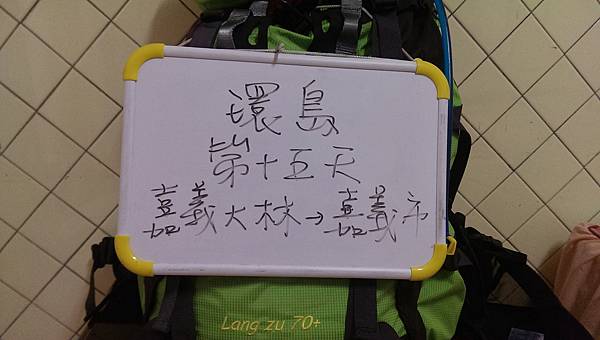 環島
第十五天
嘉義大林→嘉義市
Lang zu 70+